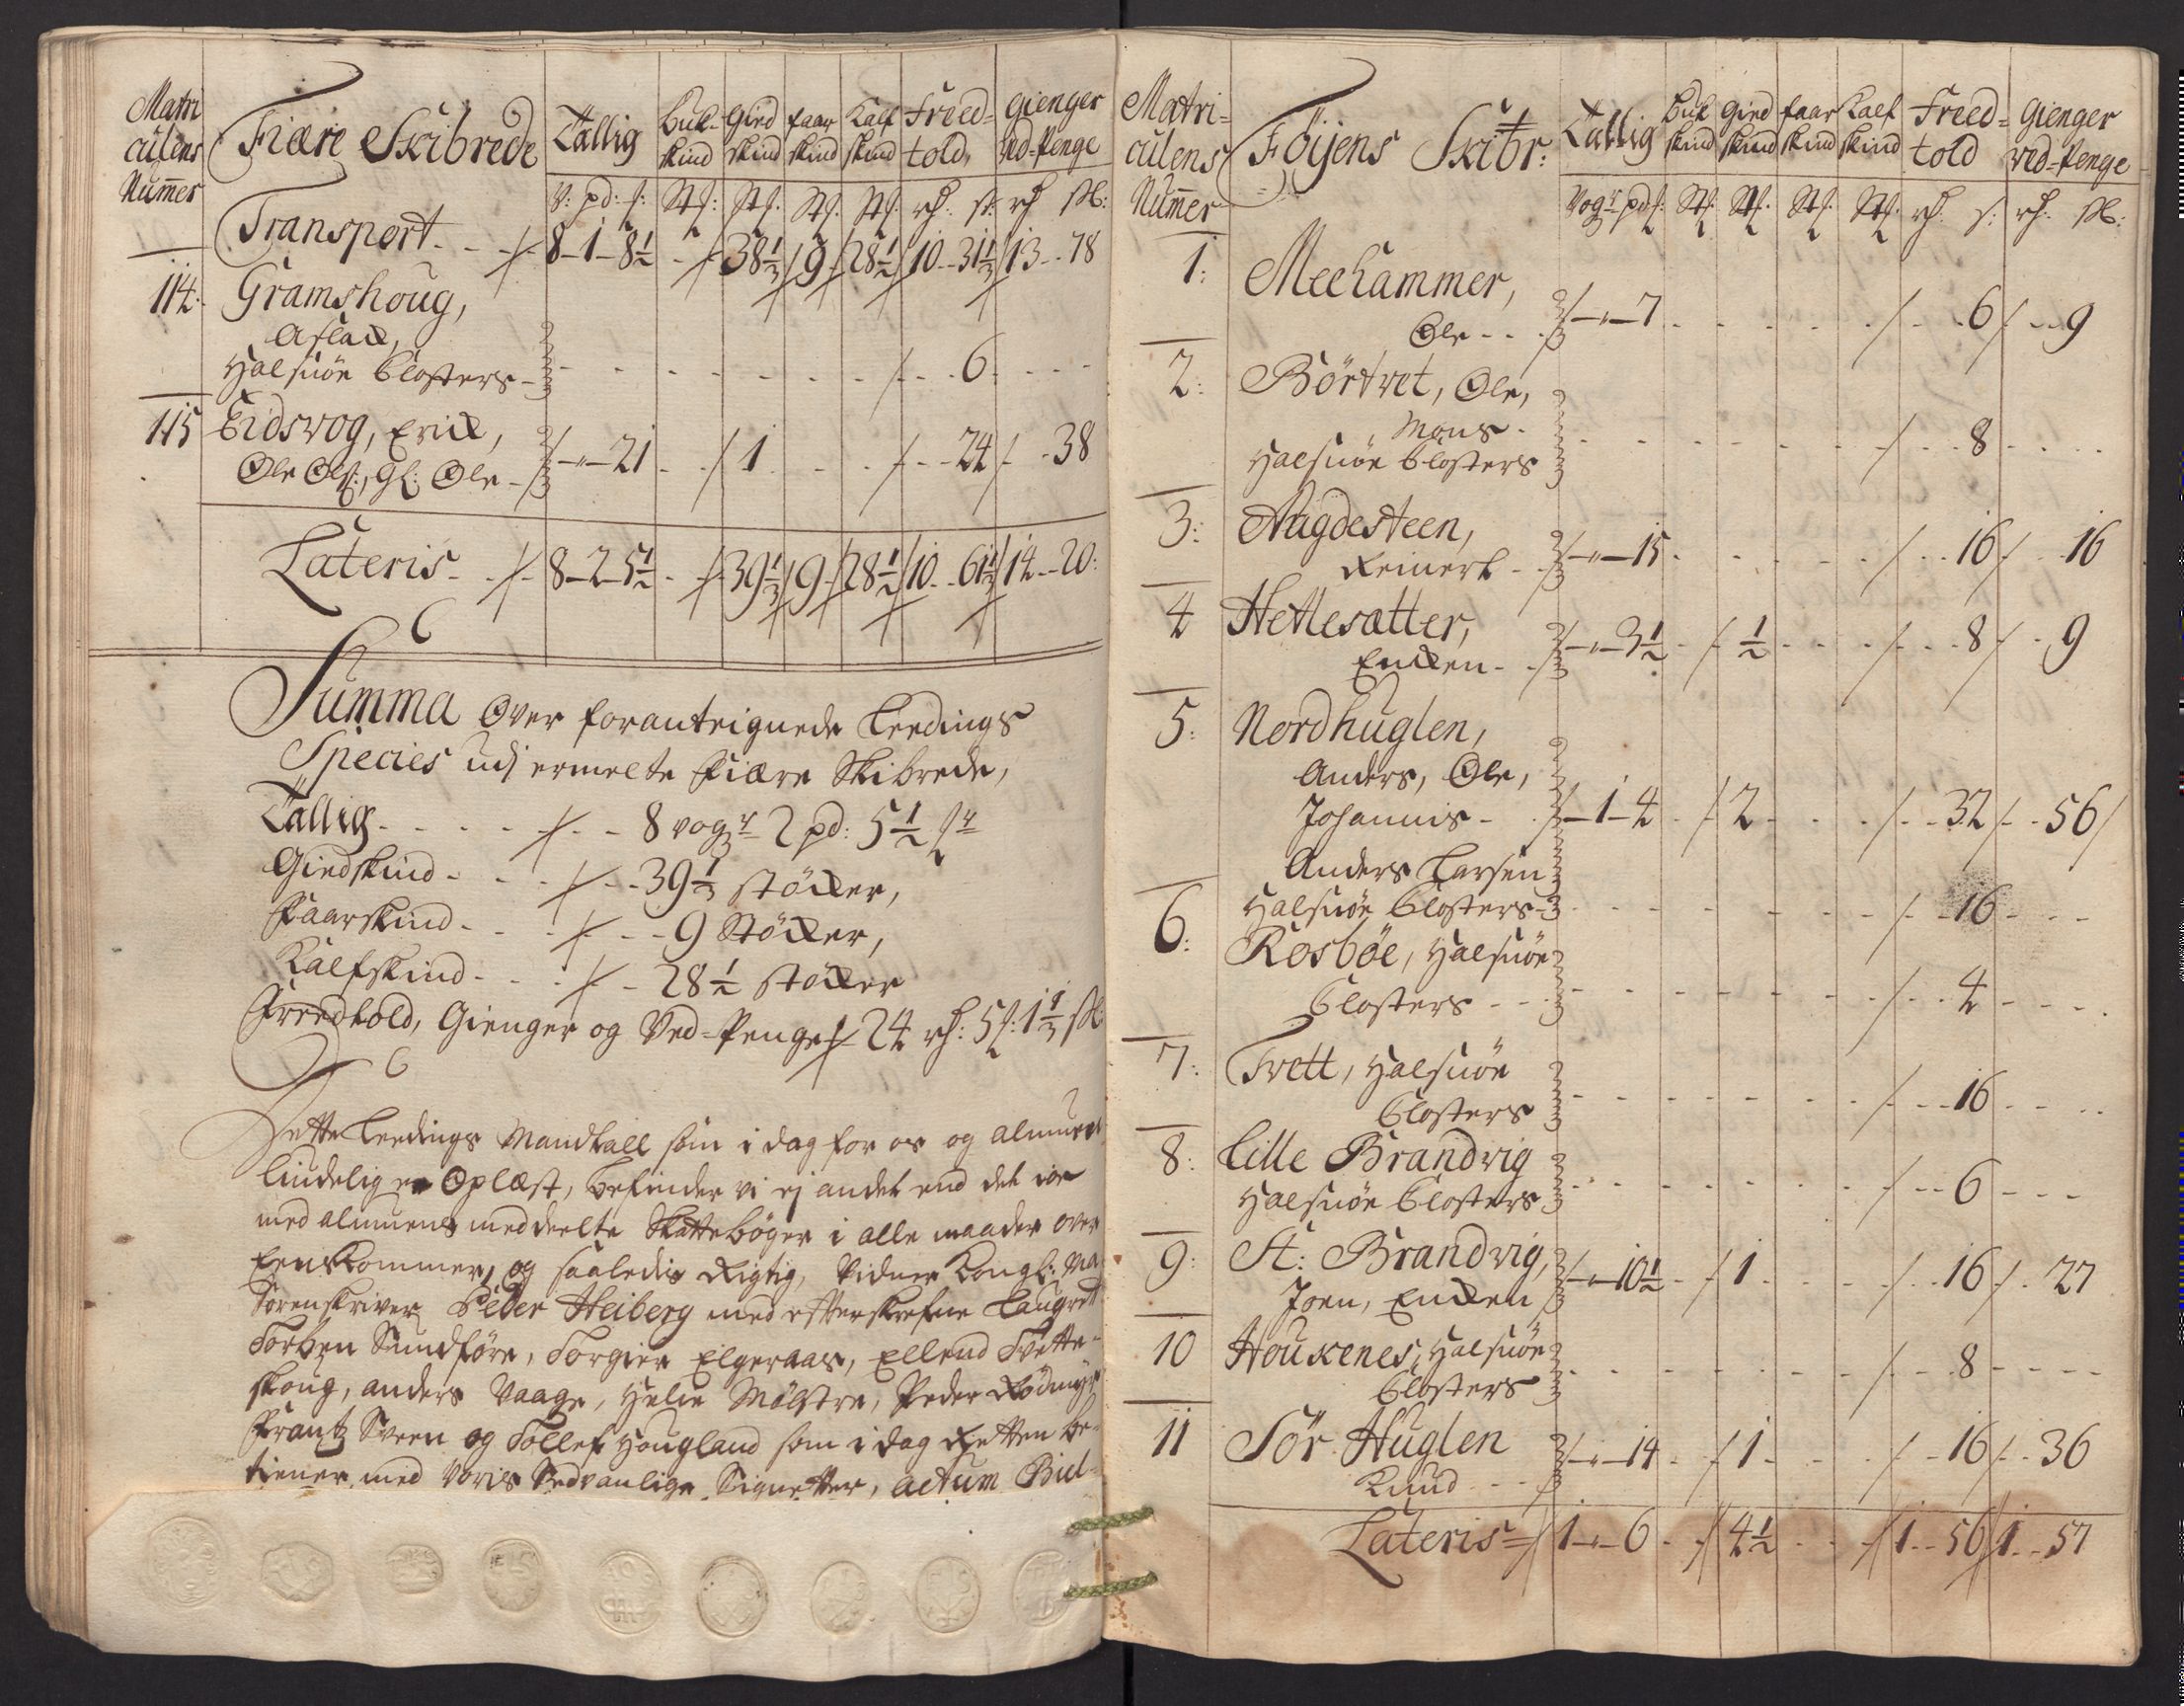 Matri
culens
Nummer
Fiære Skibrede
Tallig
Buk-
skind
Gied
skind
faar
skind
Kalf
skind
Freed-
told,
gienger
ved-Penge
V: pd: St: St: St: St: rd: s: rd s:
Transport - - 8-1-8½ - 38⅓ 9 28½ 10--31⅓ 13--78
114: Gramshoug,
Aslak,
Halsnöe Closters - - - 6 - -
115 Eidsvog, Erick,
Ole Ols:, gl: Ole - 21 - 1 - - 24 - 38
Lateris - 8-2-5½ - 39⅓ 9 28½ 10--61⅓ 14--20:
Summa over foranteignede Leedings
Species udj ermelte Fiære Skibrede,
Tallig - - - 8 vogr 2 pd: 5½
Giedskind - - - 39⅓ stöcker,
Faarskind - - - 9 Stöcker,
Kalfskind - - - 28½ stöcker
Freedtold, Gienger og Ved-Penge 24 rd: 5 1⅓ s:
Dette Leedings Mandtall som i dag for os og almuen
liudelig er Oplæst, befinder vi ej andet end det ioe
med almuens meddeelte Skattebøger i alle maader over
Eenskommer, og saaledis Rigtig, Vidner Kongl: Ma
Sorenskriver Peder Heiberg med efterskrefne Laugrett
Torben Sundföre, Torgier Elgeraas, Ellend Tvette-
skoug, anders Vaage, Helie Mölstre, Peder Rödmyr
Frantz Sveen og Tollef Hougland som i dag Retten be-
tiener, med Voris Sedvanlige Signetter, actum Biel-
Matri-
culens
Nummer
Föijens Skibr:
Tallig
Buk
skind
Gied
skind
faar
skind
Kalf
skind
Freed-
told
gienger
Ved-Penge
Vogr pd: St: St: St: St: rd: s: rd: s:
1: Meehammer,
Ole - - 7 - - - 6 - 9
2: Börtvet, Ole,
Mons -
Halsnöe Closters - - - 8 - -
3: Augdesteen,
Reinert - 15 - - - 16 - 16
4 Hettesætter,
Encken - 3½ - ½ - - - 8 - 9
5: Nordhuglen,
Anders, Ole,
Johannis - 1-4 - 2 - - 32 - 56
Anders Larsen
Halsnöe Closters - - - 16 - -
6: Rosböe, Halsnöe
Closters - - - 4 - -
7: Tvett, Halsnöe
Closters - - - 16 - -
8: Lille Brandvig
Halsnöe Closters - - - 6 - -
9: St: Brandvig,
Joen, Encken - 10½ - 1 - - 16 - 27
10 Houkenes, Halsnöe
Closters - - - 8 - -
11 Sör Huglen
Knud - - 14 - 1 - - 16 - 36
Lateris 1-"-6 - 4½ - - 1--56 1--57